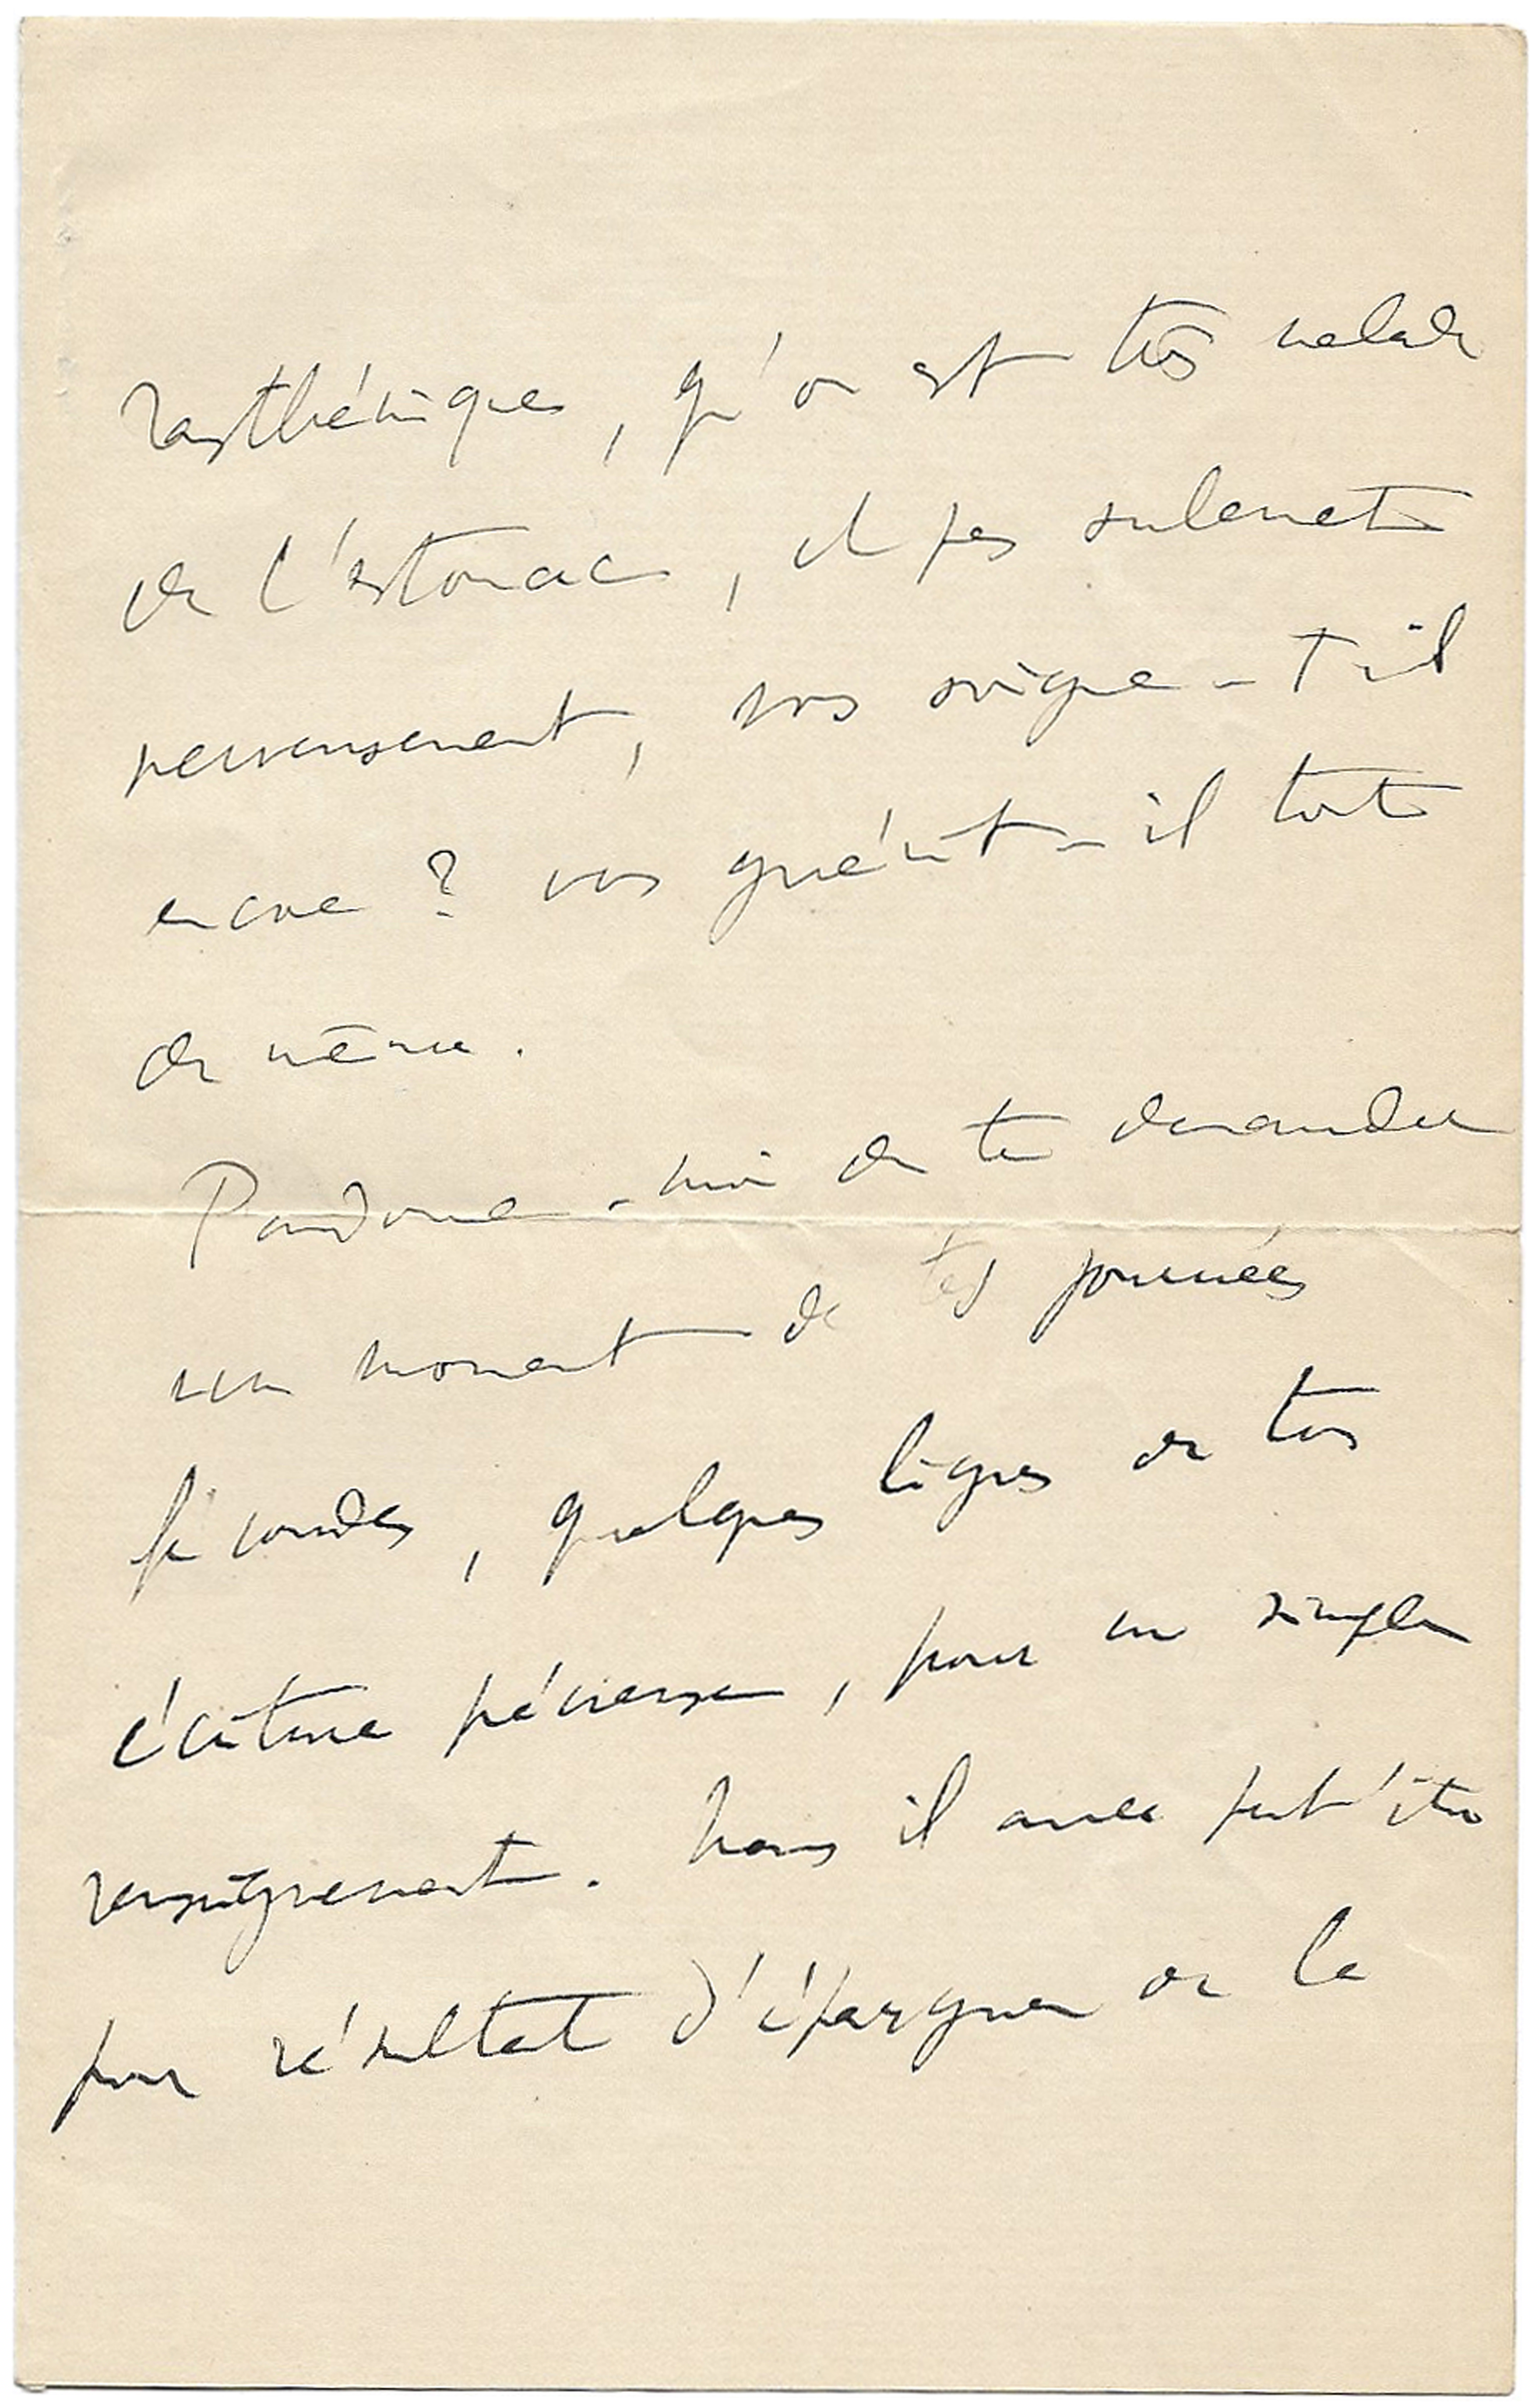 rasthéniques, qu'on est très malade
de l'estomac, et pas seulement
nerveusement, vous soigne-t-il
encore ? vous guérit-il tout
de même.
Pardonne-moi de te demander
un moment de tes journées
fécondes, quelques lignes de ton
écriture précieuse, pour un simple
renseignement. Mais il aura peut'être
pour résultat d'épargner de la